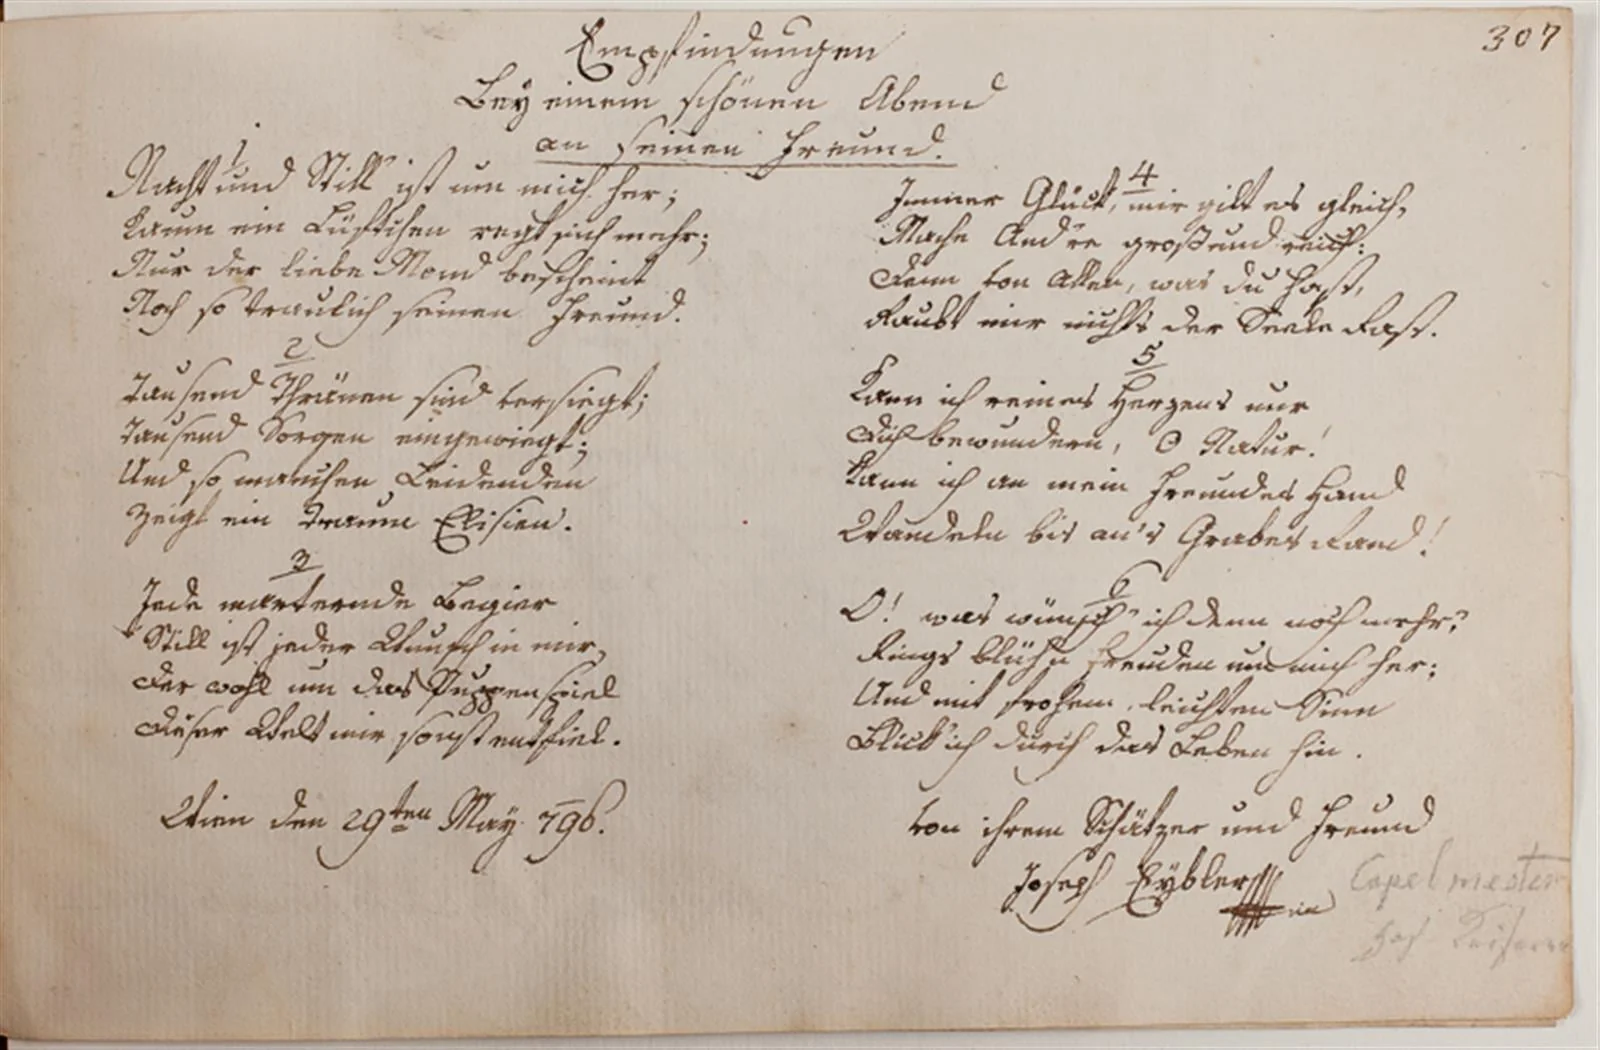 307
Empfindungen
Bey einem schönen Abend
an seinen Freund.
1
Nacht und Still' ist um mich her;
Kaum ein Lüftchen regt sich mehr;
Nur der liebe Mond bescheint
Noch so traulich seinen Freund.
2
Tausend Thränen sind versiegt;
Tausend Sorgen eingewiegt;
Und so manchen Leidenden
Zeigt ein Traum Elisien.
3
Jede marternde Begier
Still ist jeder Wunsch in mir,
Der wohl um das Puppenspiel
Dieser Welt mir sonst entfiel.
Wien den 29ten May 796.
4
Immer Glück, mir gilt es gleich,
Mache And're groß und reich:
Denn von Allen, was du hast,
Raubt mir nichts der Seele Rast.
5
Kann ich reines Herzens nur
Dich bewundern, O Natur!
Kann ich an mein Freundes Hand
Wandeln bis an's Grabes Rand!
6
O! was wünsch' ich denn noch mehr?
Rings blühn Freuden um mich her;
Und mit frohem, leichten Sinn
Blick' ich durch das Leben hin.
von ihrem Schätzer und Freund
Joseph Eybler
Capelmester